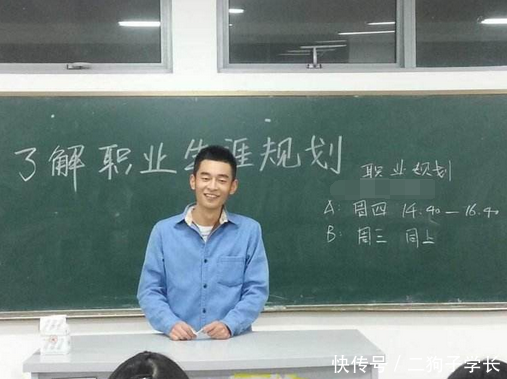 了解职业生涯规划
职业规划
A: 周四 14.40—16.40
B: 周三 同上
快传号/二狗子学长